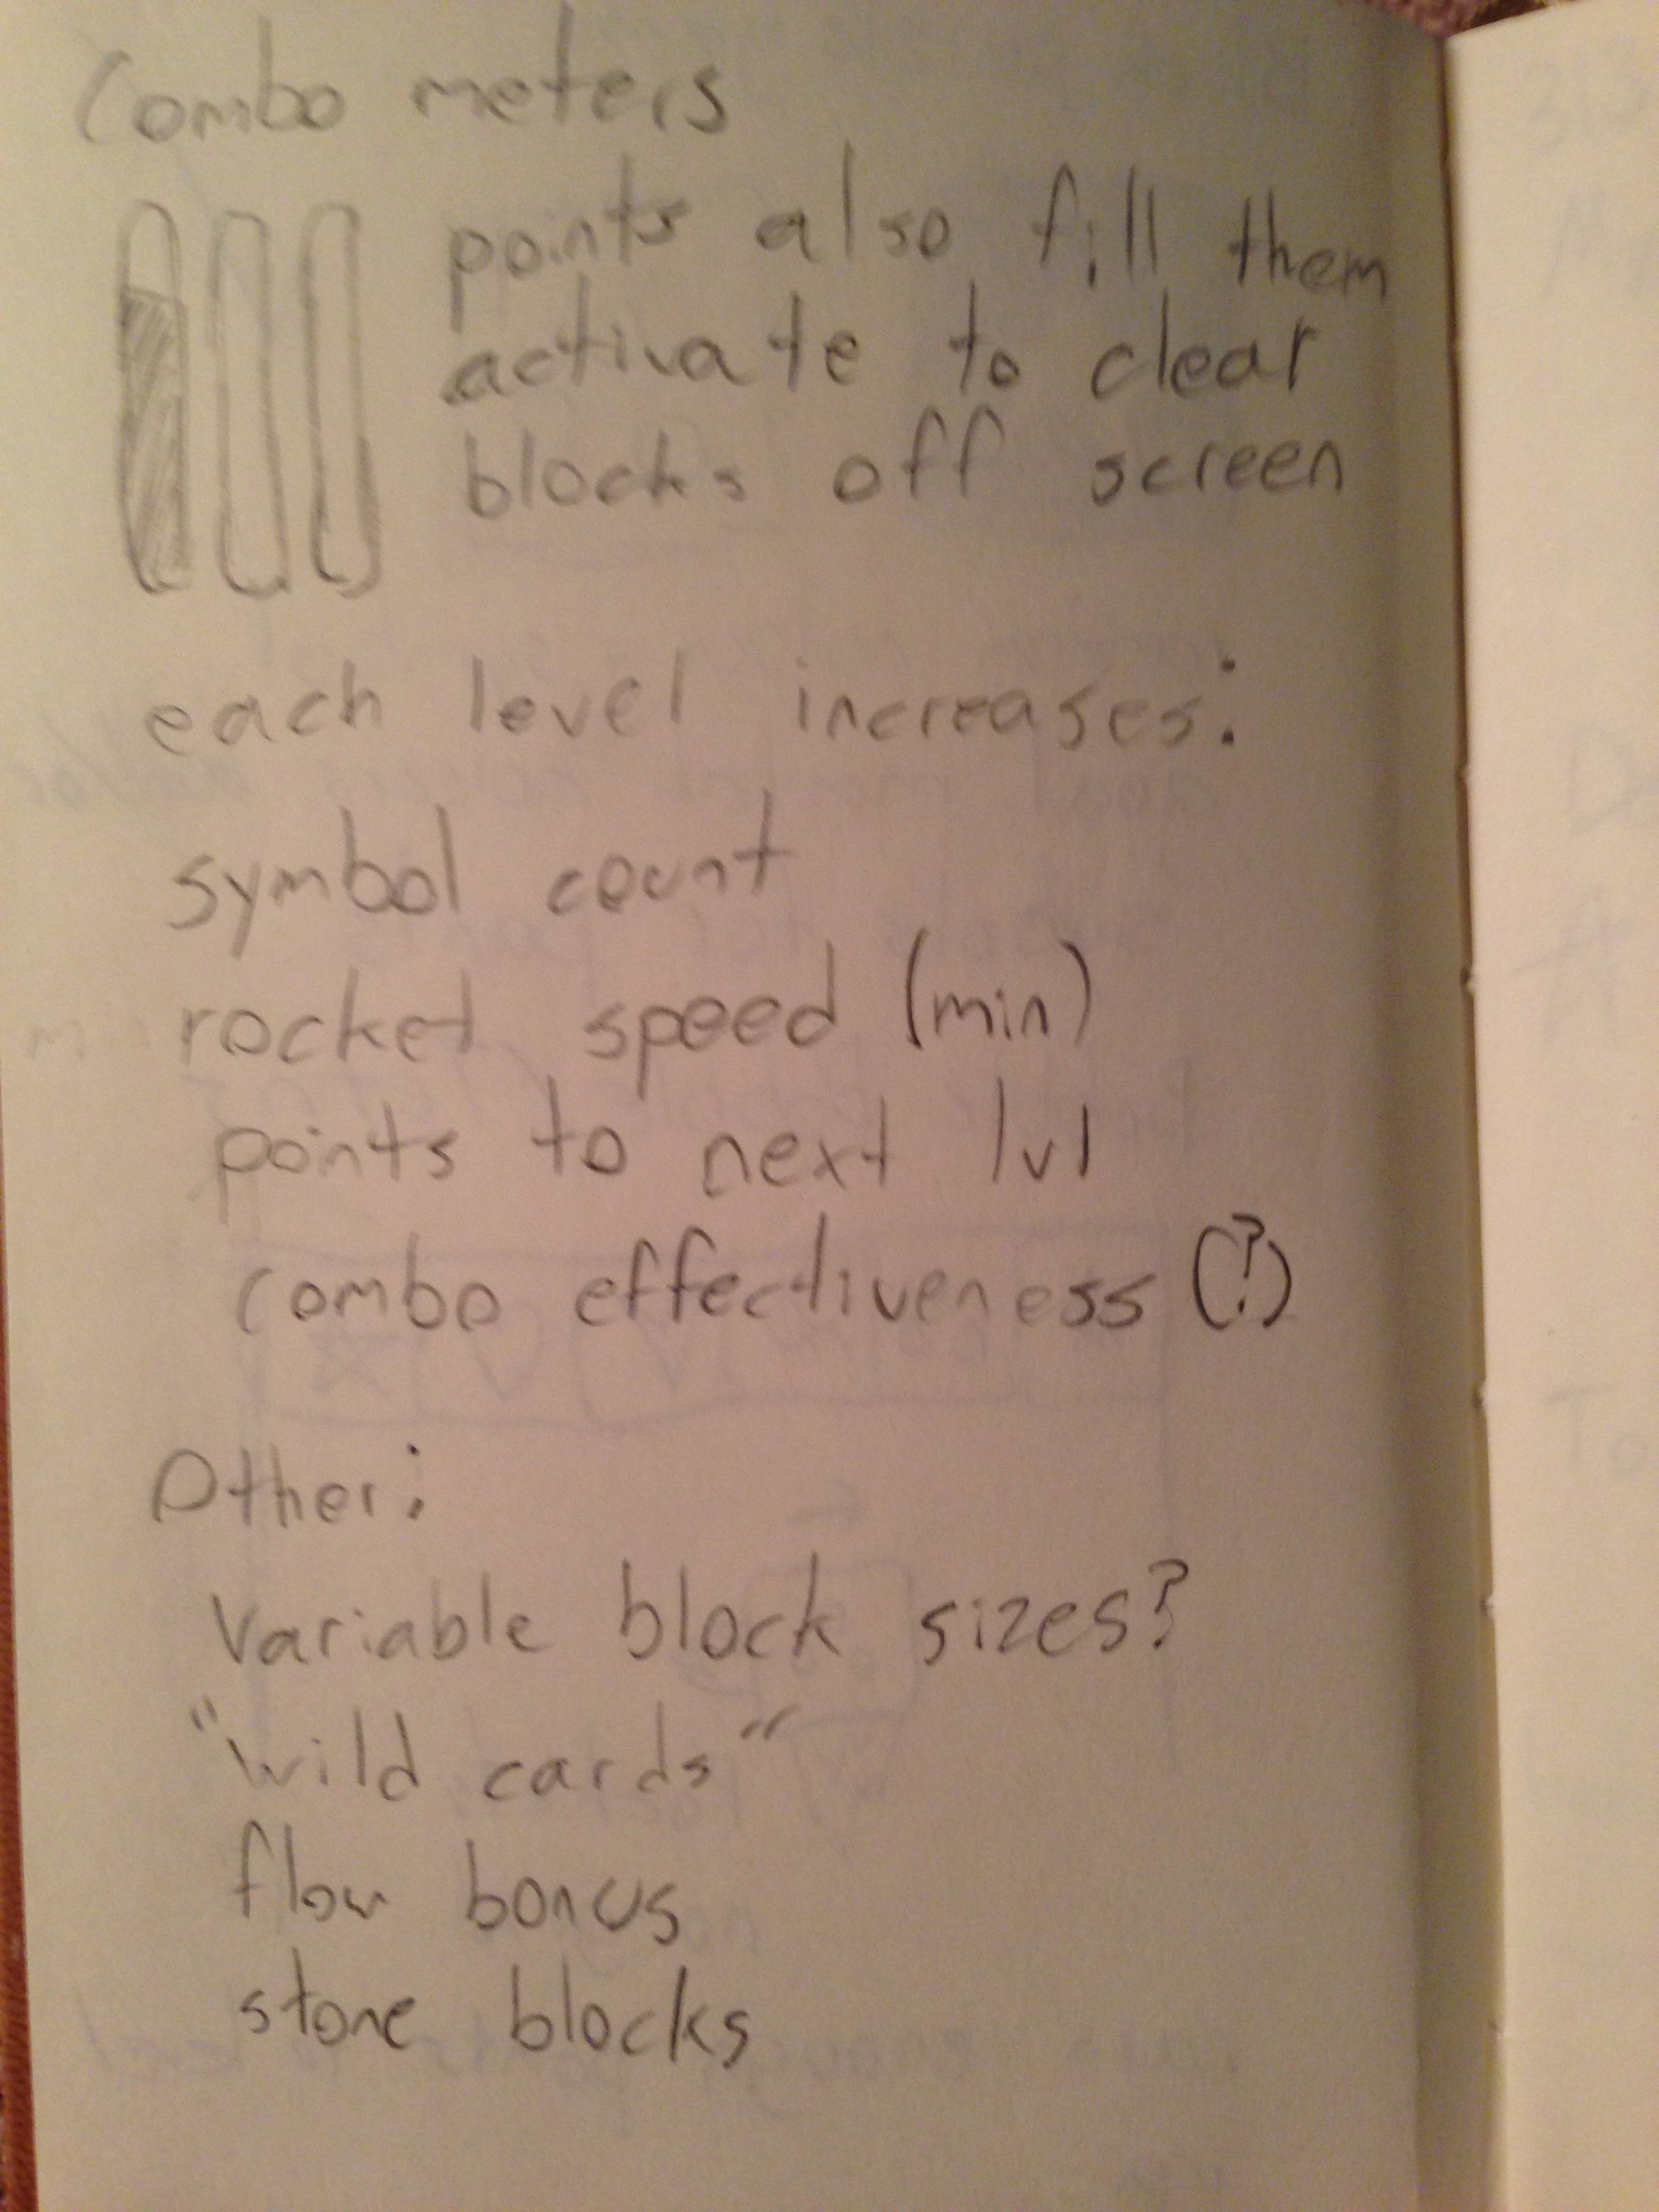 Combo meters
points also fill them
activate to clear
blocks off screen
each level increases:
symbol count
rocket speed (min)
points to next lvl
combo effectiveness (?)
Other:
Variable block sizes?
"wild cards"
flow bonus
stone blocks